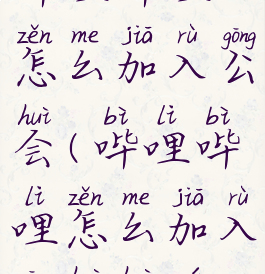 zěn me jiā rù gōng
怎么加入公
huì bì lì bì
会(哔哩哔
lì zěn me jiā rù
哩怎么加入